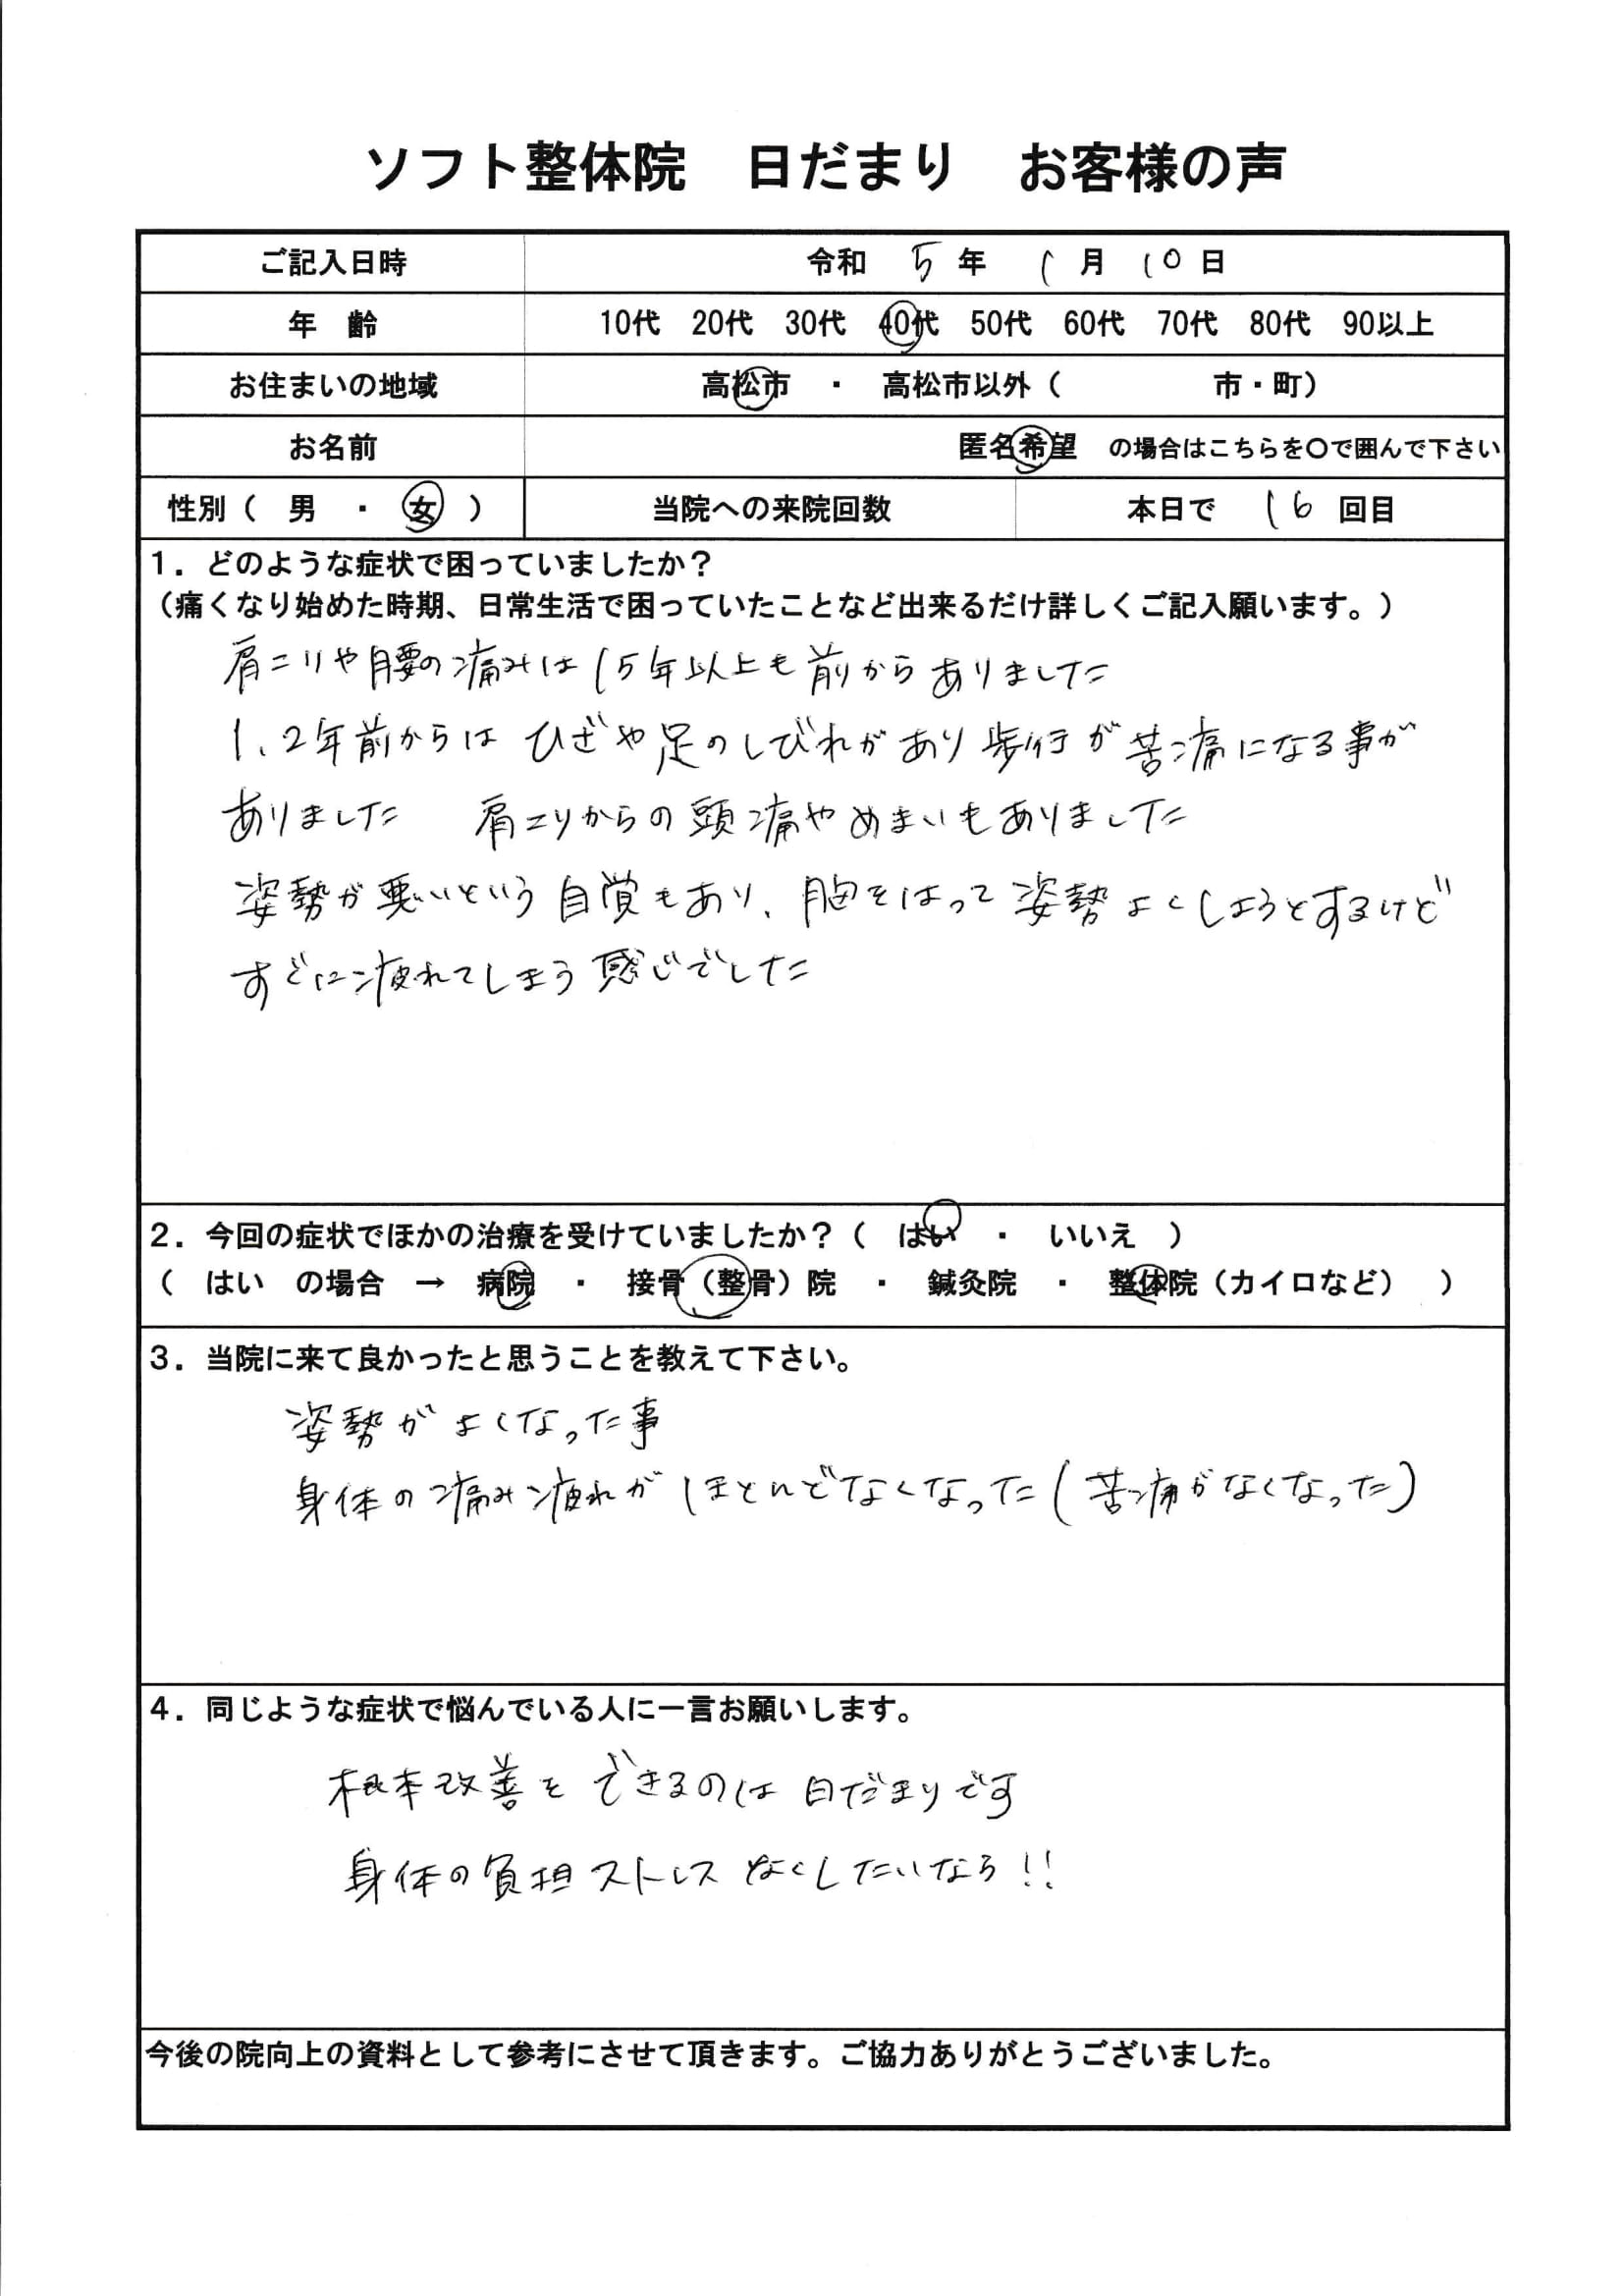 ソフト整体院　日だまり　お客様の声
ご記入日時　令和　5　年　1　月　10　日
年　齢　10代　20代　30代　40代　50代　60代　70代　80代　90以上
お住まいの地域　高松市　・　高松市以外（　　　　　市・町）
お名前　匿名希望　の場合はこちらを〇で囲んで下さい
性別（　男　・　女　）　当院への来院回数　本日で　16　回目
1．どのような症状で困っていましたか？
（痛くなり始めた時期、日常生活で困っていたことなど出来るだけ詳しくご記入願います。）
肩コリや腰の痛みは15年以上も前からありました
1、2年前からは ひざや足のしびれがあり歩行が苦痛になる事が
ありました　肩コリからの頭痛やめまいもありました
姿勢が悪いという自覚もあり、胸をはって姿勢よくしようとするけど
すぐに疲れてしまう感じでした
2．今回の症状でほかの治療を受けていましたか？（　はい　・　いいえ　）
（　はい　の場合　→　病院　・　接骨（整骨）院　・　鍼灸院　・　整体院（カイロなど）　）
3．当院に来て良かったと思うことを教えて下さい。
姿勢がよくなった事
身体の痛み疲れがほとんどなくなった（苦痛がなくなった）
4．同じような症状で悩んでいる人に一言お願いします。
根本改善をできるのは日だまりです
身体の負担ストレスなくしたいなら！！
今後の院向上の資料として参考にさせて頂きます。ご協力ありがとうございました。